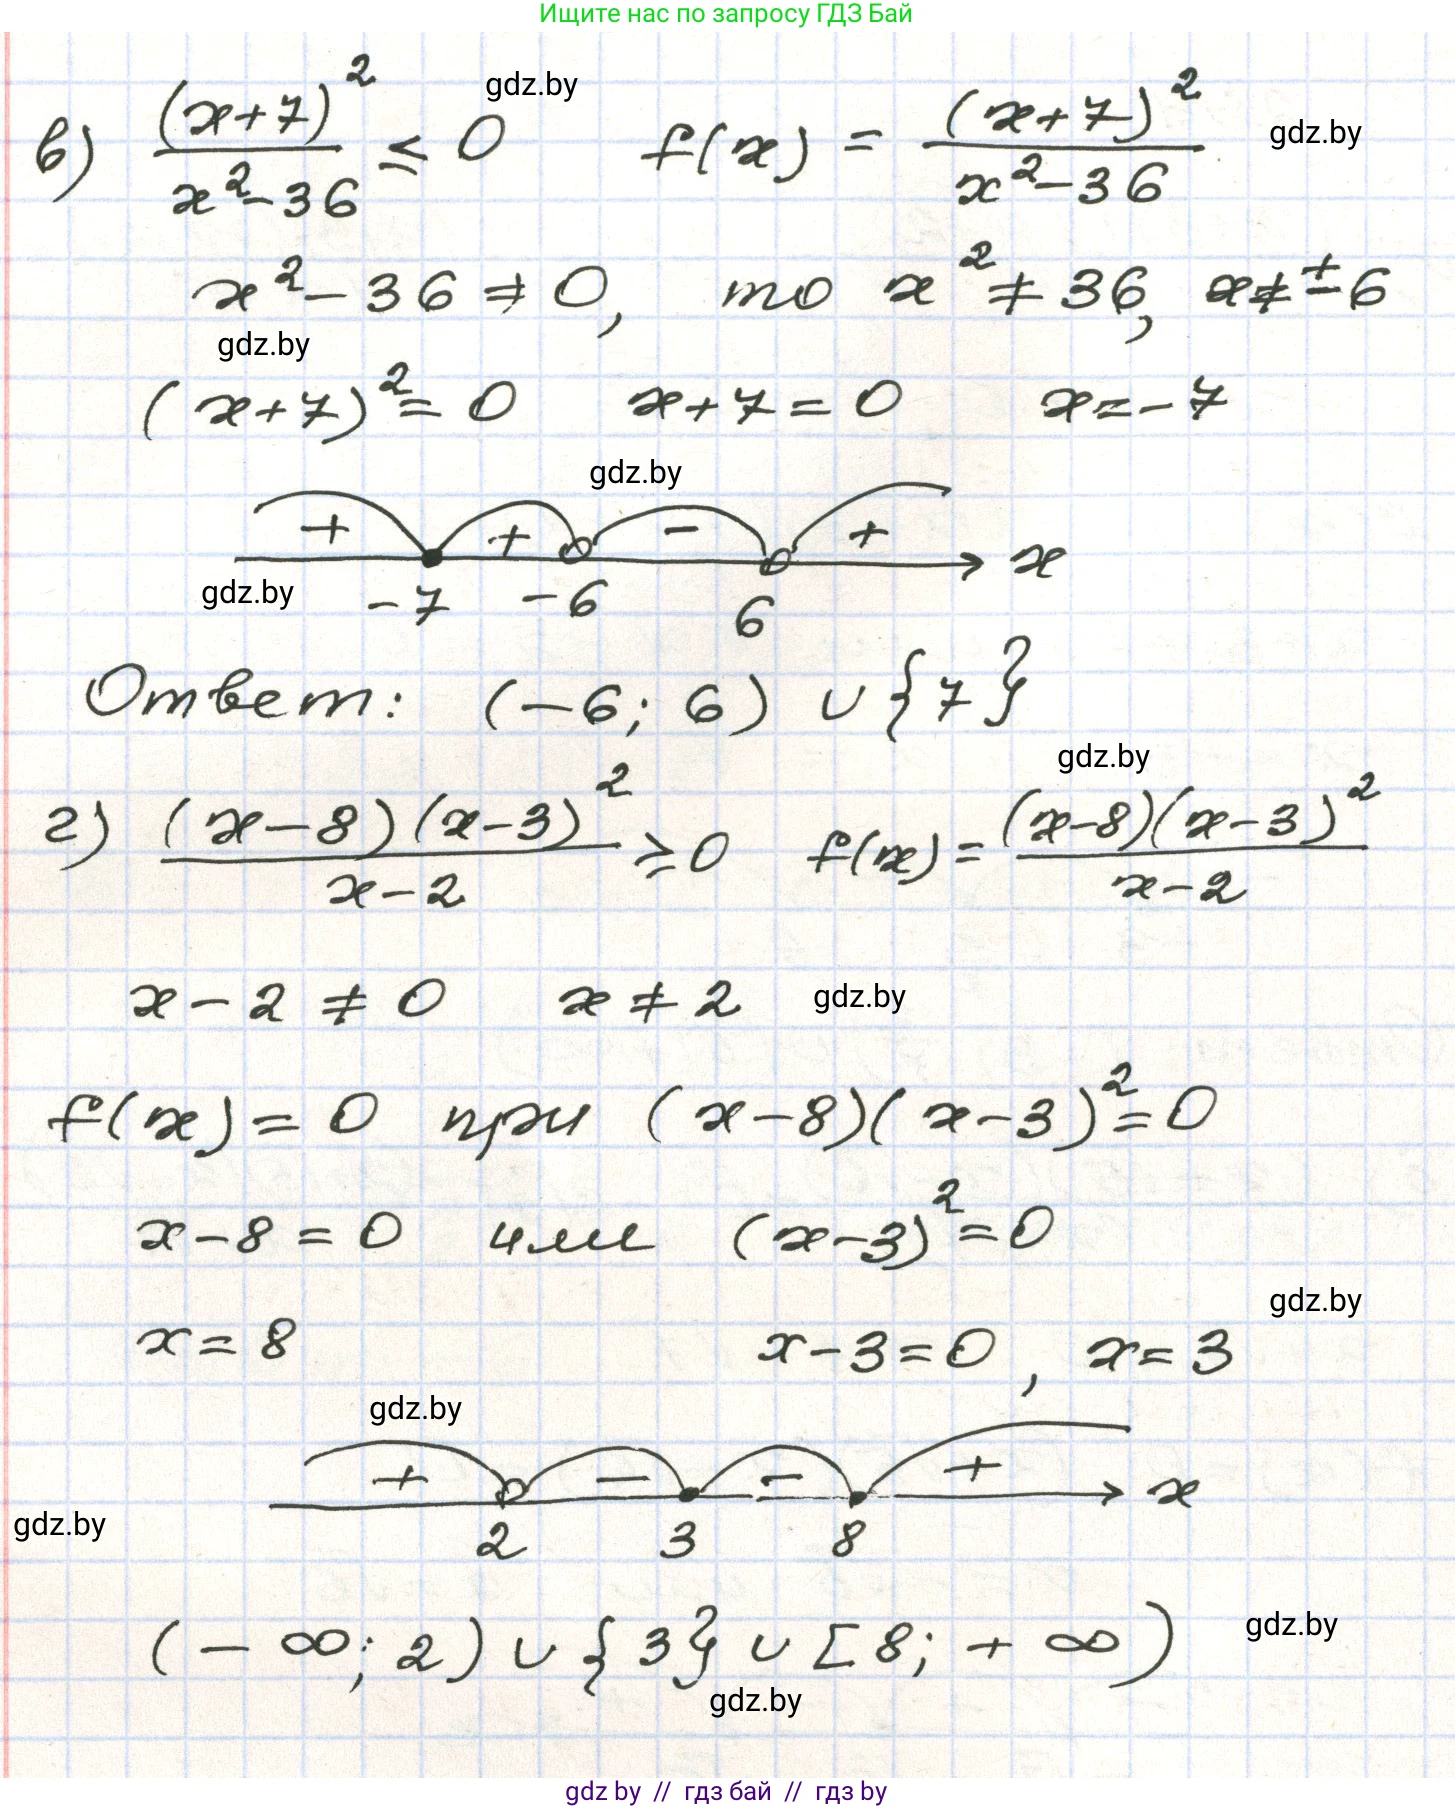 Ищите нас по запросу ГДЗ Бай
в) (x+7)²/(x²-36) ≤ 0 f(x) = (x+7)²/(x²-36)
gdz.by
gdz.by
x²-36≠0, то x²≠36, x≠±6
gdz.by
(x+7)²=0 x+7=0 x=-7
gdz.by
+ + - + x
gdz.by
-7 -6 6
Ответ: (-6; 6) ∪ {7}
gdz.by
г) (x-8)(x-3)²/(x-2) ≥ 0 f(x) = (x-8)(x-3)²/(x-2)
x-2≠0 x≠2 gdz.by
f(x)=0 при (x-8)(x-3)²=0
x-8=0 или (x-3)²=0
gdz.by
x=8 x-3=0, x=3
gdz.by
+ - - + x
gdz.by
2 3 8
(-∞; 2) ∪ {3} ∪ [8; +∞) gdz.by
gdz.by
gdz by // гдз бай // гдз by